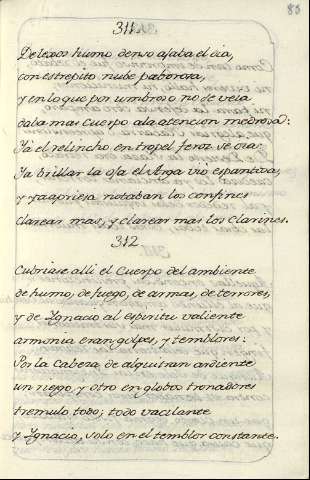 83
311.
De lexos humo denso afaba el dia,
con estrepito nube paborosa,
y en lo que por umbroso no se veia
daba mas cuerpo a la atencion medrosa:
Ya el relincho en tropel feroz se oia:
Ya brillar la osa el Arga vió espantiva,
y ya apriesa notaban los confines
clarear mas, y clarear mas los Clarines.
312
Cubriase alli el Cuerpo del ambiente
de humo, de fuego, de armas, de terrores,
y de Ygnacio al espiritu valiente
armonia eran golpes, y temblores:
Por la Cabeza de alquitran ardiente
un riesgo, y otro en globos tronadores
tremulo todo; todo vacilante
y Ygnacio, solo en el temblor constante.